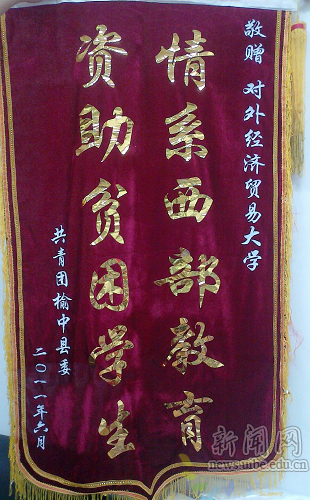 敬赠 对外经济贸易大学
情系西部教育
资助贫困学生
共青团榆中县委
二〇一一年六月
新闻网
news.uibe.edu.cn